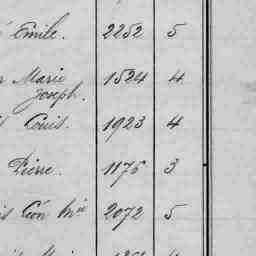 Emile. 2252 5
Marie 1524 4
Joseph.
Louis. 1923 4
Pierre. 1176 3
is Léon Mie 2072 5